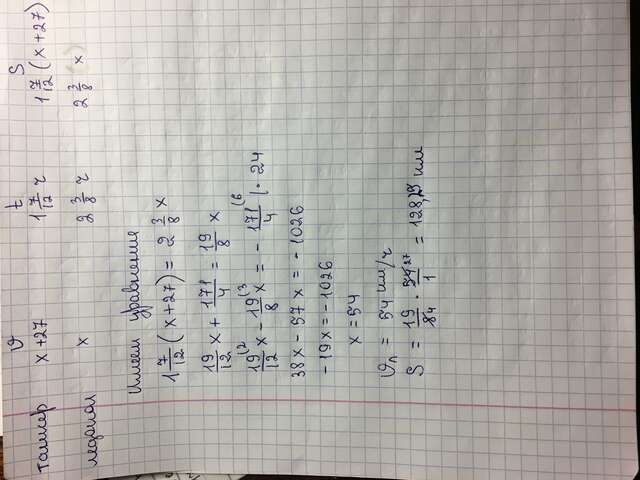 v t S
таллер x+27 1 7/12 ч 1 7/12 (x+27)
медиал x 2 3/8 ч 2 3/8 x
Имеем уравнение
1 7/12 (x+27) = 2 3/8 x
19/12 x + 171/4 = 19/8 x
19/12 (2 x - 19/8 (3 x = - 171/4 (6 | · 24
38x - 57x = - 1026
- 19x = - 1026
x = 54
vл = 54 км/ч
S = 19/8 4 · 54 27/1 = 128,25 км